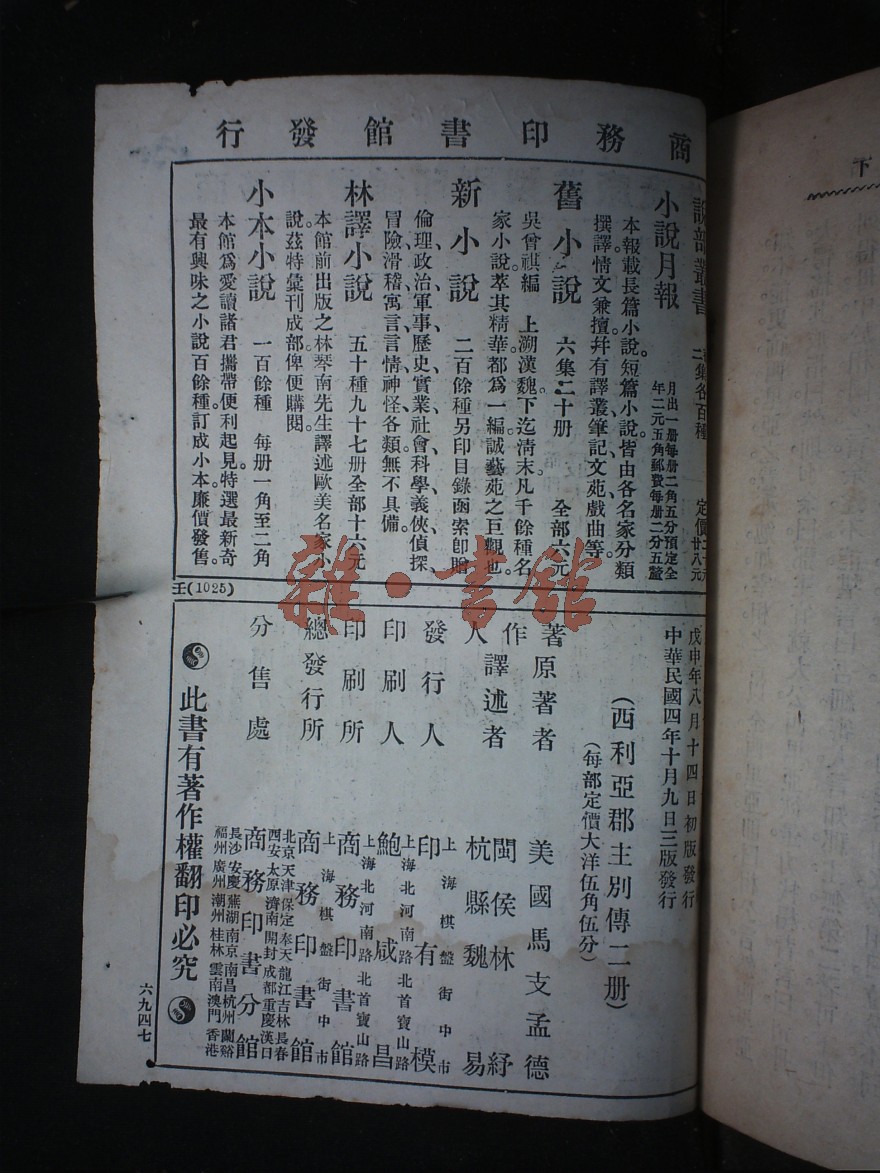 商務印書館發行
說部叢書
二集各百種
定價
廿八元
小說月報
月出一册每册二角五分預定全
年二元五角郵費每册二分五釐
本報載長篇小說短篇小說皆由各名家分類
撰譯情文兼擅幷有譯叢筆記文苑戲曲等。
舊小說 六集二十册 全部六元
吳曾祺編 上溯漢魏下迄淸末凡千餘種名
家小說萃其精華都爲一編誠藝苑之巨觀也。
新小說 二百餘種另印目錄函索卽贈
倫理、政治、軍事、歷史、實業、社會、科學、義俠、偵探、
冒險、滑稽、寓言、言情、神怪各類無不具備。
林譯小說 五十種九十七册全部十六元
本館前出版之林琴南先生譯述歐美名家小
說茲特彙刊成部俾便購閱。
小本小說 一百餘種 每册一角至二角
本館爲愛讀諸君攜帶便利起見特選最新奇
最有興味之小說百餘種訂成小本廉價發售。
壬(1025)
戊申年八月十四日初版發行
中華民國四年十月九日三版發行
(西利亞郡主別傳二册)
(每部定價大洋伍角伍分)
著作人
原著者 美國馬支孟德
譯述者 閩侯林紓
杭縣魏易
發行人 上海棋盤街中市
印有模
印刷人 上海北河南路北首寶山路
鮑咸昌
印刷所 上海北河南路北首寶山路
商務印書館
總發行所 上海棋盤街中市
商務印書館
分售處 北京天津保定奉天龍江吉林長春
西安太原濟南開封成都重慶漢口
商務印書分館
長沙安慶蕪湖南京南昌杭州蘭谿
福州廣州潮州桂林雲南澳門香港
此書有著作權翻印必究
六九四七
下
雜·書館